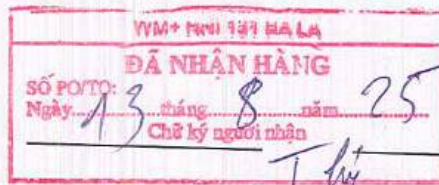 WM+ HNI 131 HA LA
ĐÃ NHẬN HÀNG
SỐ PO/TO:
Ngày 13 tháng 8 năm 25
Chữ ký người nhận